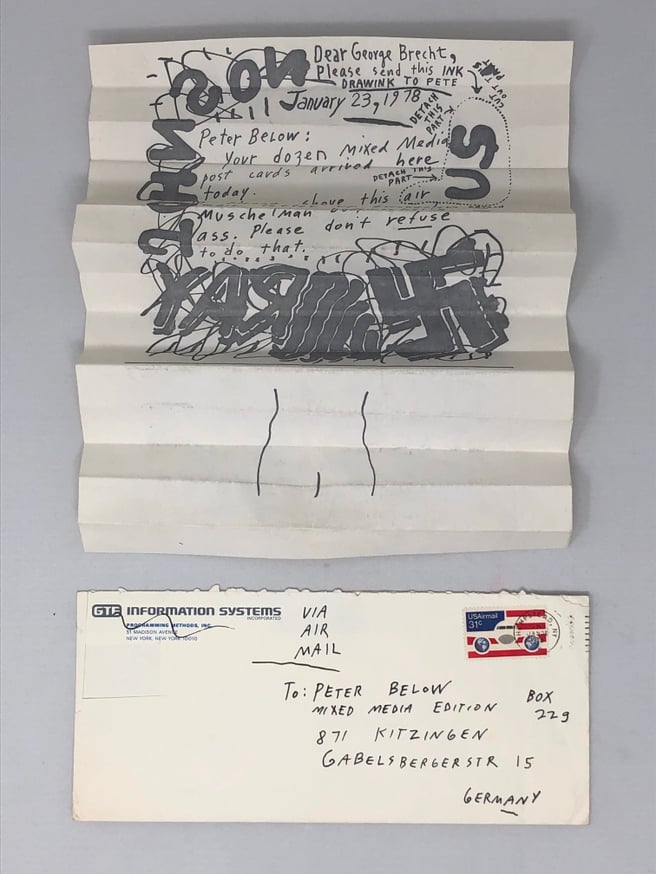 Dear George Brecht,
Please send this INK
DRAWINK TO PETE
CUT OUT
PART
January 23, 1978
DETACH
THIS
PART
US
Peter Below:
Your dozen mixed Media
post cards arrived here
DETACH THIS
PART
today.
this air
Muschelman
ass. Please don't refuse
to do that.
GTE INFORMATION SYSTEMS
INCORPORATED
PROGRAMMING METHODS, INC.
51 MADISON AVENUE
NEW YORK, NEW YORK 10010
VIA
AIR
MAIL
USAirmail
31c
To: PETER BELOW
MIXED MEDIA EDITION
BOX
229
871 KITZINGEN
GABELSBERGERSTR 15
GERMANY